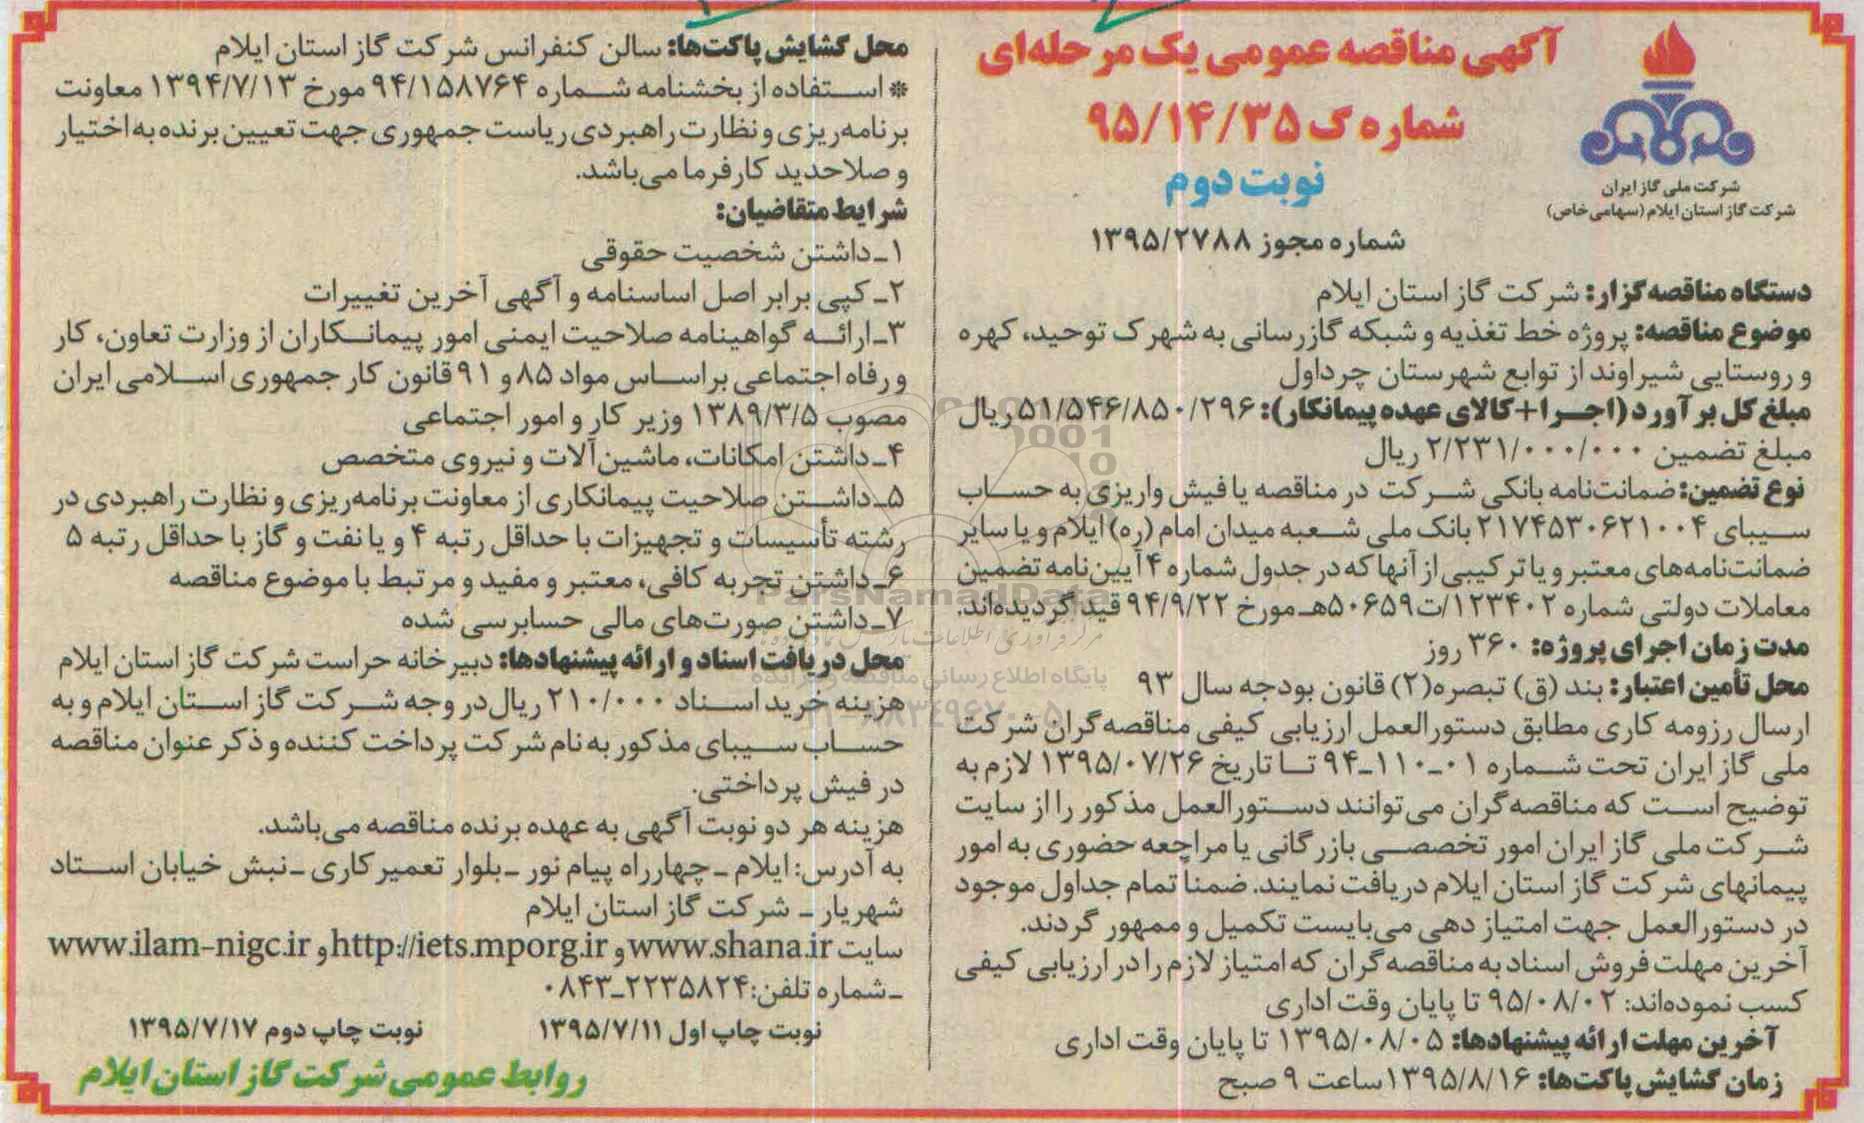 آگهی مناقصه عمومی یک مرحله‌ای
شماره ک ۹۵/۱۴/۳۵
نوبت دوم
شماره مجوز ۱۳۹۵/۲۷۸۸
شرکت ملی گاز ایران
شرکت گاز استان ایلام (سهامی خاص)
دستگاه مناقصه‌گزار: شرکت گاز استان ایلام
موضوع مناقصه: پروژه خط تغذیه و شبکه گازرسانی به شهرک توحید، کهره
و روستایی شیراوند از توابع شهرستان چرداول
مبلغ کل برآورد (اجرا+کالای عهده پیمانکار): ۵۱/۵۴۶/۸۵۰/۲۹۶ ریال
مبلغ تضمین ۲/۲۳۱/۰۰۰/۰۰۰ ریال
نوع تضمین: ضمانت‌نامه بانکی شرکت در مناقصه یا فیش واریزی به حساب
سیبای ۲۱۷۴۵۳۰۶۲۱۰۰۴ بانک ملی شعبه میدان امام (ره) ایلام و یا سایر
ضمانت‌نامه‌های معتبر و یا ترکیبی از آنها که در جدول شماره ۴ آیین‌نامه تضمین
معاملات دولتی شماره ۱۲۳۴۰۲/ت۵۰۶۵۹هـ مورخ ۹۴/۹/۲۲ قید گردیده‌اند.
مدت زمان اجرای پروژه: ۳۶۰ روز
محل تأمین اعتبار: بند (ق) تبصره(۲) قانون بودجه سال ۹۳
ارسال رزومه کاری مطابق دستورالعمل ارزیابی کیفی مناقصه‌گران شرکت
ملی گاز ایران تحت شماره ۰۱-۱۱۰-۹۴ تا تاریخ ۱۳۹۵/۰۷/۲۶ لازم به
توضیح است که مناقصه‌گران می‌توانند دستورالعمل مذکور را از سایت
شرکت ملی گاز ایران امور تخصصی بازرگانی یا مراجعه حضوری به امور
پیمانهای شرکت گاز استان ایلام دریافت نمایند. ضمنا تمام جداول موجود
در دستورالعمل جهت امتیاز دهی می‌بایست تکمیل و ممهور گردند.
آخرین مهلت فروش اسناد به مناقصه‌گران که امتیاز لازم را در ارزیابی کیفی
کسب نموده‌اند: ۹۵/۰۸/۰۲ تا پایان وقت اداری
آخرین مهلت ارائه پیشنهادها: ۱۳۹۵/۰۸/۰۵ تا پایان وقت اداری
زمان گشایش پاکت‌ها: ۱۳۹۵/۸/۱۶ ساعت ۹ صبح
محل گشایش پاکت‌ها: سالن کنفرانس شرکت گاز استان ایلام
* استفاده از بخشنامه شماره ۹۴/۱۵۸۷۶۴ مورخ ۱۳۹۴/۷/۱۳ معاونت
برنامه‌ریزی و نظارت راهبردی ریاست جمهوری جهت تعیین برنده به اختیار
و صلاحدید کارفرما می‌باشد.
شرایط متقاضیان:
۱ـ داشتن شخصیت حقوقی
۲ـ کپی برابر اصل اساسنامه و آگهی آخرین تغییرات
۳ـ ارائه گواهینامه صلاحیت ایمنی امور پیمانکاران از وزارت تعاون، کار
و رفاه اجتماعی براساس مواد ۸۵ و ۹۱ قانون کار جمهوری اسلامی ایران
مصوب ۱۳۸۹/۳/۵ وزیر کار و امور اجتماعی
۴ـ داشتن امکانات، ماشین‌آلات و نیروی متخصص
۵ـ داشتن صلاحیت پیمانکاری از معاونت برنامه‌ریزی و نظارت راهبردی در
رشته تأسیسات و تجهیزات با حداقل رتبه ۴ و یا نفت و گاز با حداقل رتبه ۵
۶ـ داشتن تجربه کافی، معتبر و مفید و مرتبط با موضوع مناقصه
۷ـ داشتن صورت‌های مالی حسابرسی شده
محل دریافت اسناد و ارائه پیشنهادها: دبیرخانه حراست شرکت گاز استان ایلام
هزینه خرید اسناد ۲۱۰/۰۰۰ ریال در وجه شرکت گاز استان ایلام و به
حساب سیبای مذکور به نام شرکت پرداخت کننده و ذکر عنوان مناقصه
در فیش پرداختی.
هزینه هر دو نوبت آگهی به عهده برنده مناقصه می‌باشد.
به آدرس: ایلام ـ چهارراه پیام نور ـ بلوار تعمیرکاری ـ نبش خیابان استاد
شهریار ـ شرکت گاز استان ایلام
سایت www.shana.ir و http://iets.mporg.ir و www.ilam-nigc.ir
ـ شماره تلفن: ۲۲۳۵۸۲۴-۰۸۴۳
نوبت چاپ اول ۱۳۹۵/۷/۱۱ نوبت چاپ دوم ۱۳۹۵/۷/۱۷
روابط عمومی شرکت گاز استان ایلام
ParsNamadData
پایگاه اطلاع رسانی مناقصه و مزایده